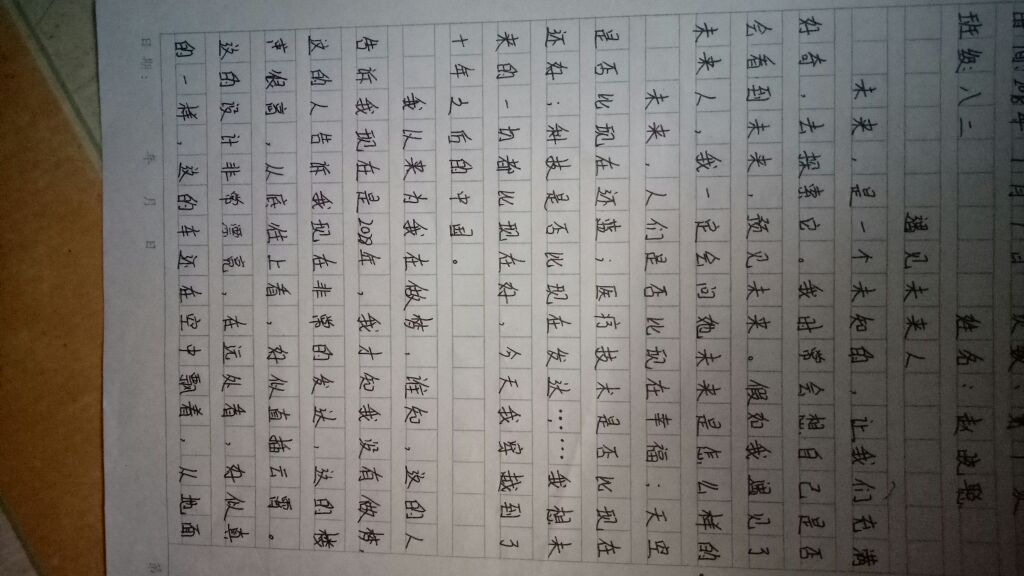 班级:八二 姓名:赵
遇见未来人
未来,是一个未知的,让我们充满
好奇,去探索它。我时常会想自己是否
会看到未来,预见未来。假如我遇见了
未来人,我一定会问他未来是怎么样的
未来,人们是否比现在幸福;天空
是否比现在还蓝;医疗技术是否比现在
还好;科技是否比现在发达……我想未
来的一切都比现在好,今天我穿越到了
十年之后的中国。
我从来为我在做梦,谁知,这的人
告诉我现在是2028年,我才知我没有做梦,
这的人告诉我现在非常的发达,这的楼
房很高,从底性上看,好似直插云霄。
这的设计非常漂亮,在远处看,好似真
的一样,这的车还在空中飘着,从地面
日期: 年 月 日 第